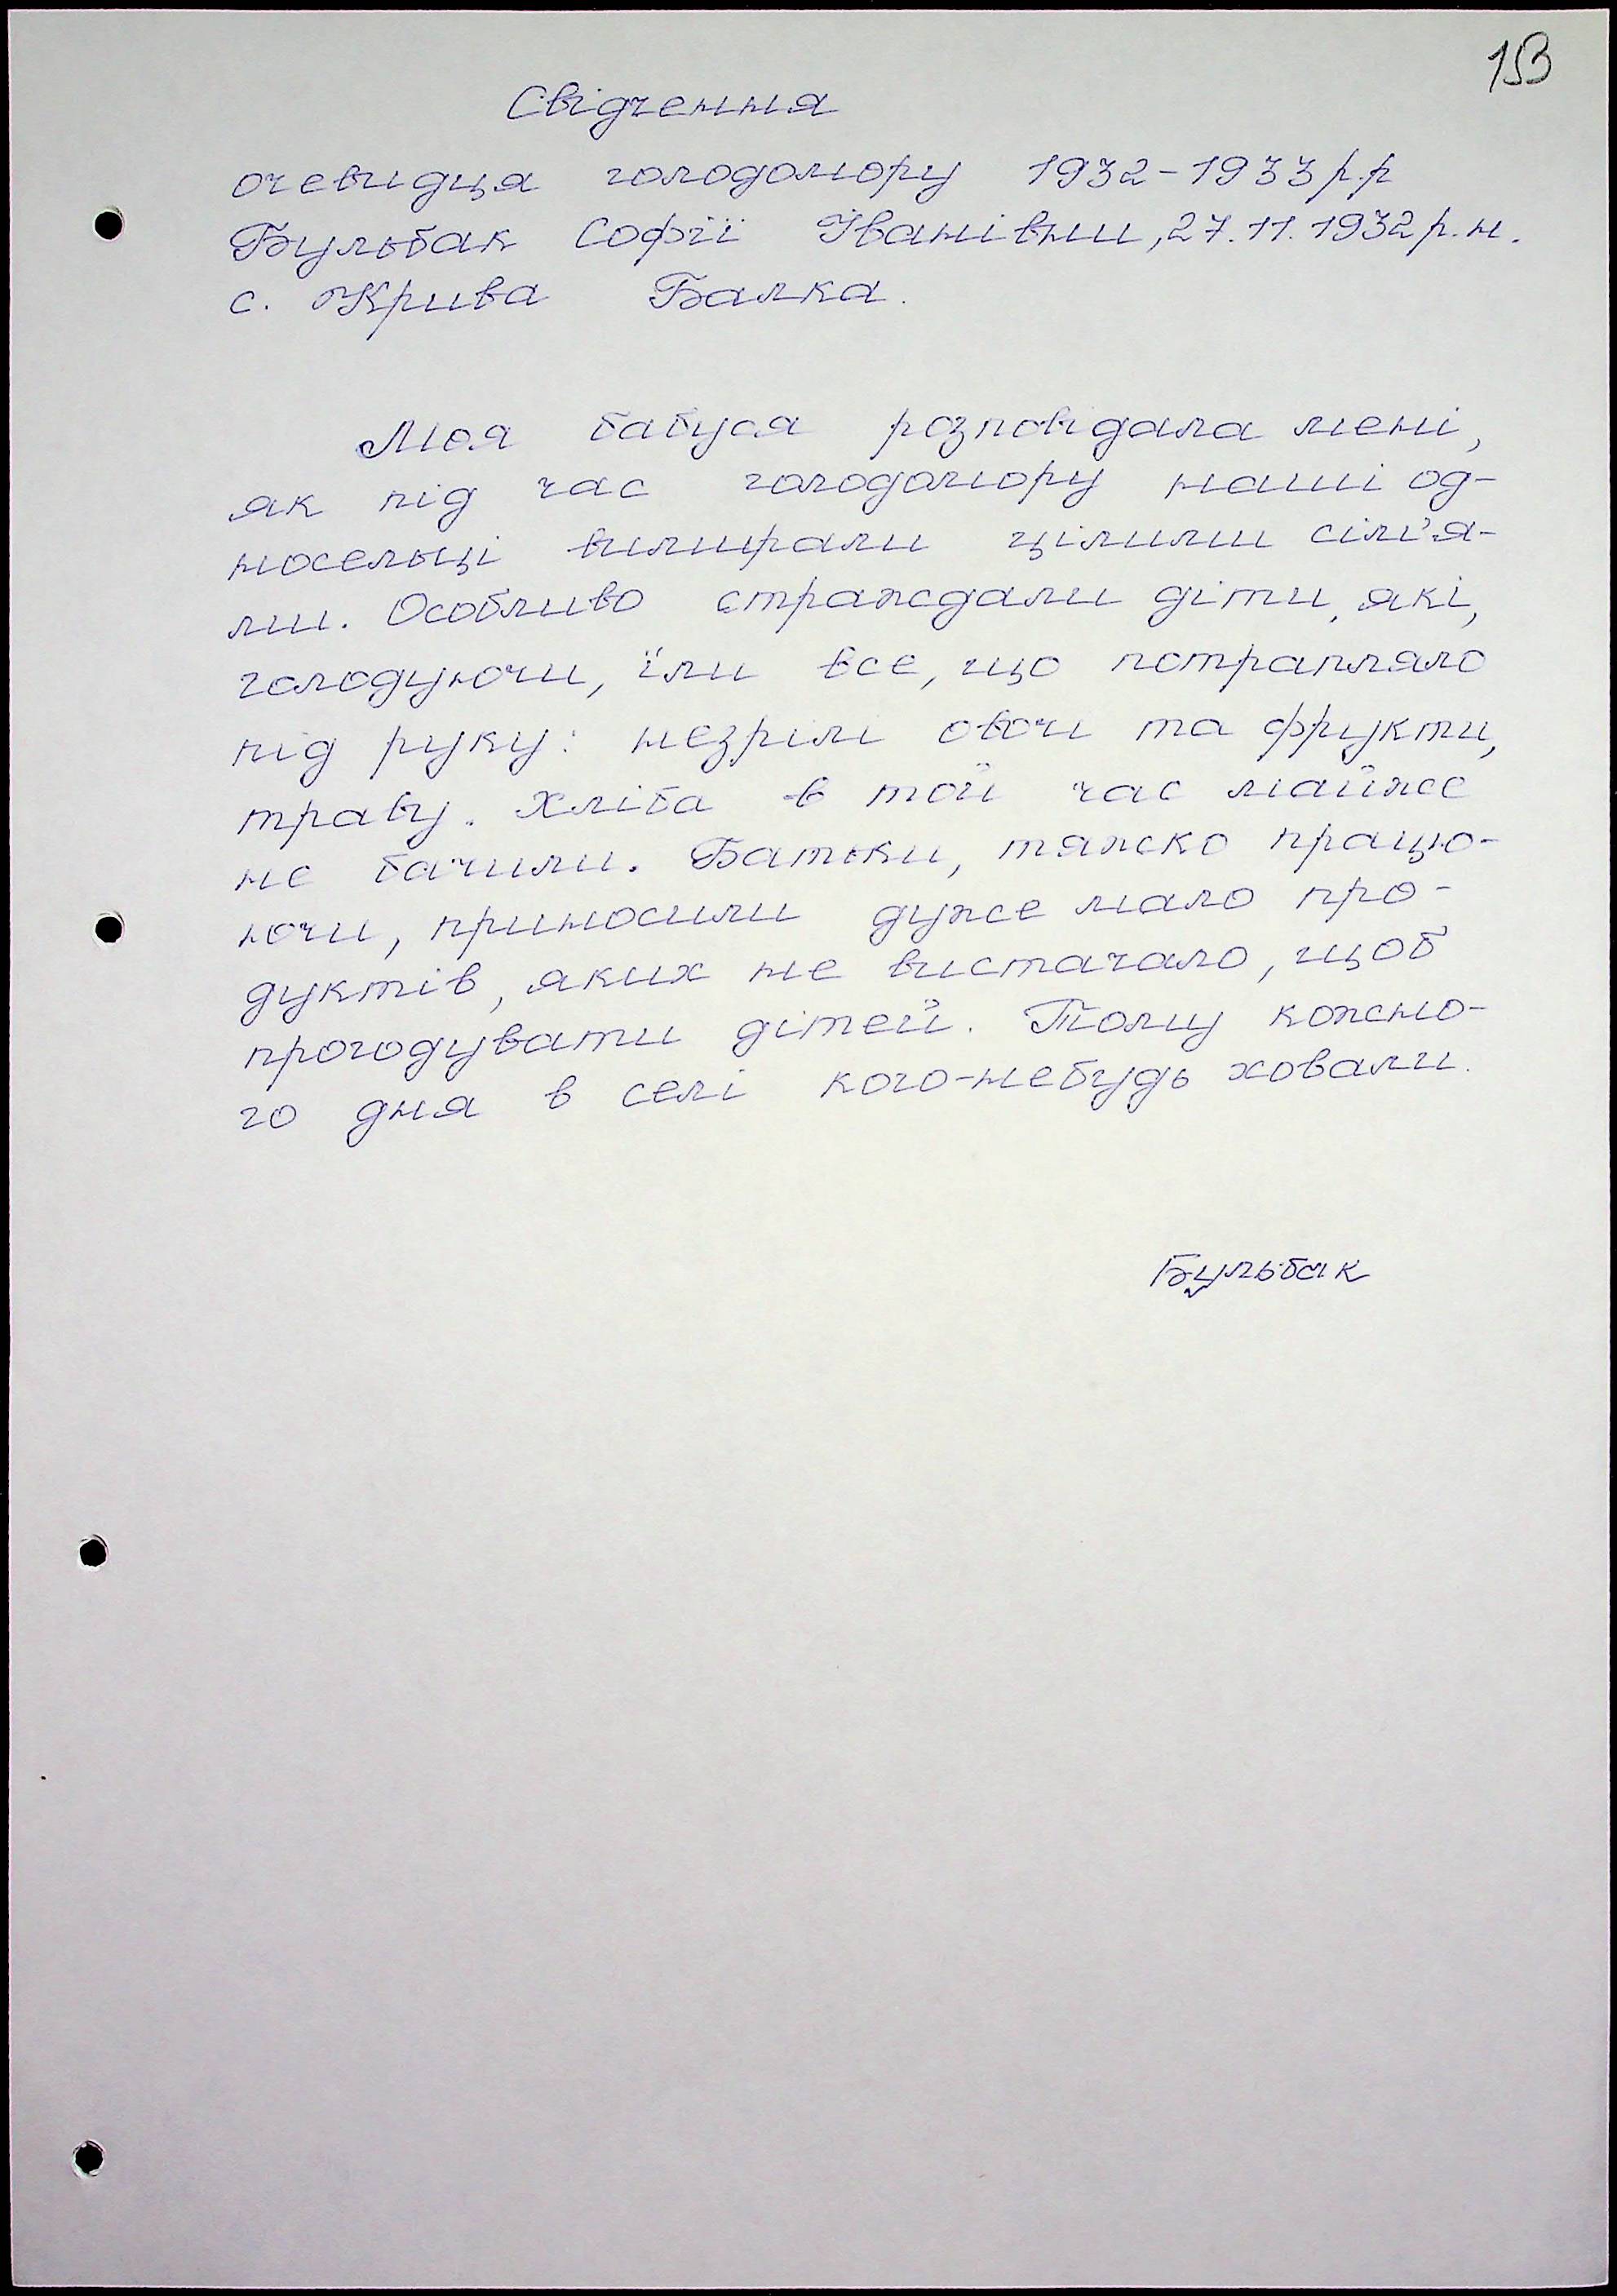 153
Свідчення
очевидця голодомору 1932-1933 р.р
Бульбак Софії Іванівни, 27.11.1932 р.н.
с. Крива Балка.
Моя бабуся розповідала мені,
як під час голодомору наші од-
носельці вимирали цілими сім'я-
ми. Особливо страждали діти, які,
голодуючи, їли все, що потрапляло
під руку: незрілі овочі та фрукти,
траву. Хліба в той час майже
не бачили. Батьки, тяжко працю-
ючи, приносили дуже мало про-
дуктів, яких не вистачало, щоб
прогодувати дітей. Тому кожно-
го дня в селі кого-небудь ховали.
Бульбак